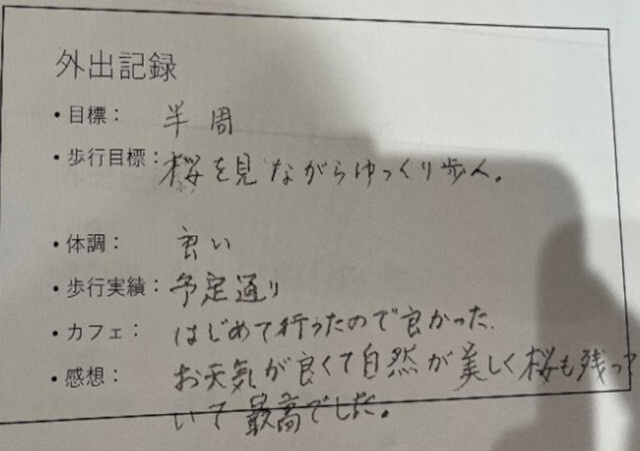 外出記録
・目標： 半周
・歩行目標： 桜を見ながらゆっくり歩く。
・体調： 良い
・歩行実績： 予定通り
・カフェ： はじめて行うたので良かった.
・感想： お天気が良くて自然が美しく桜も残って
いて最高でした。